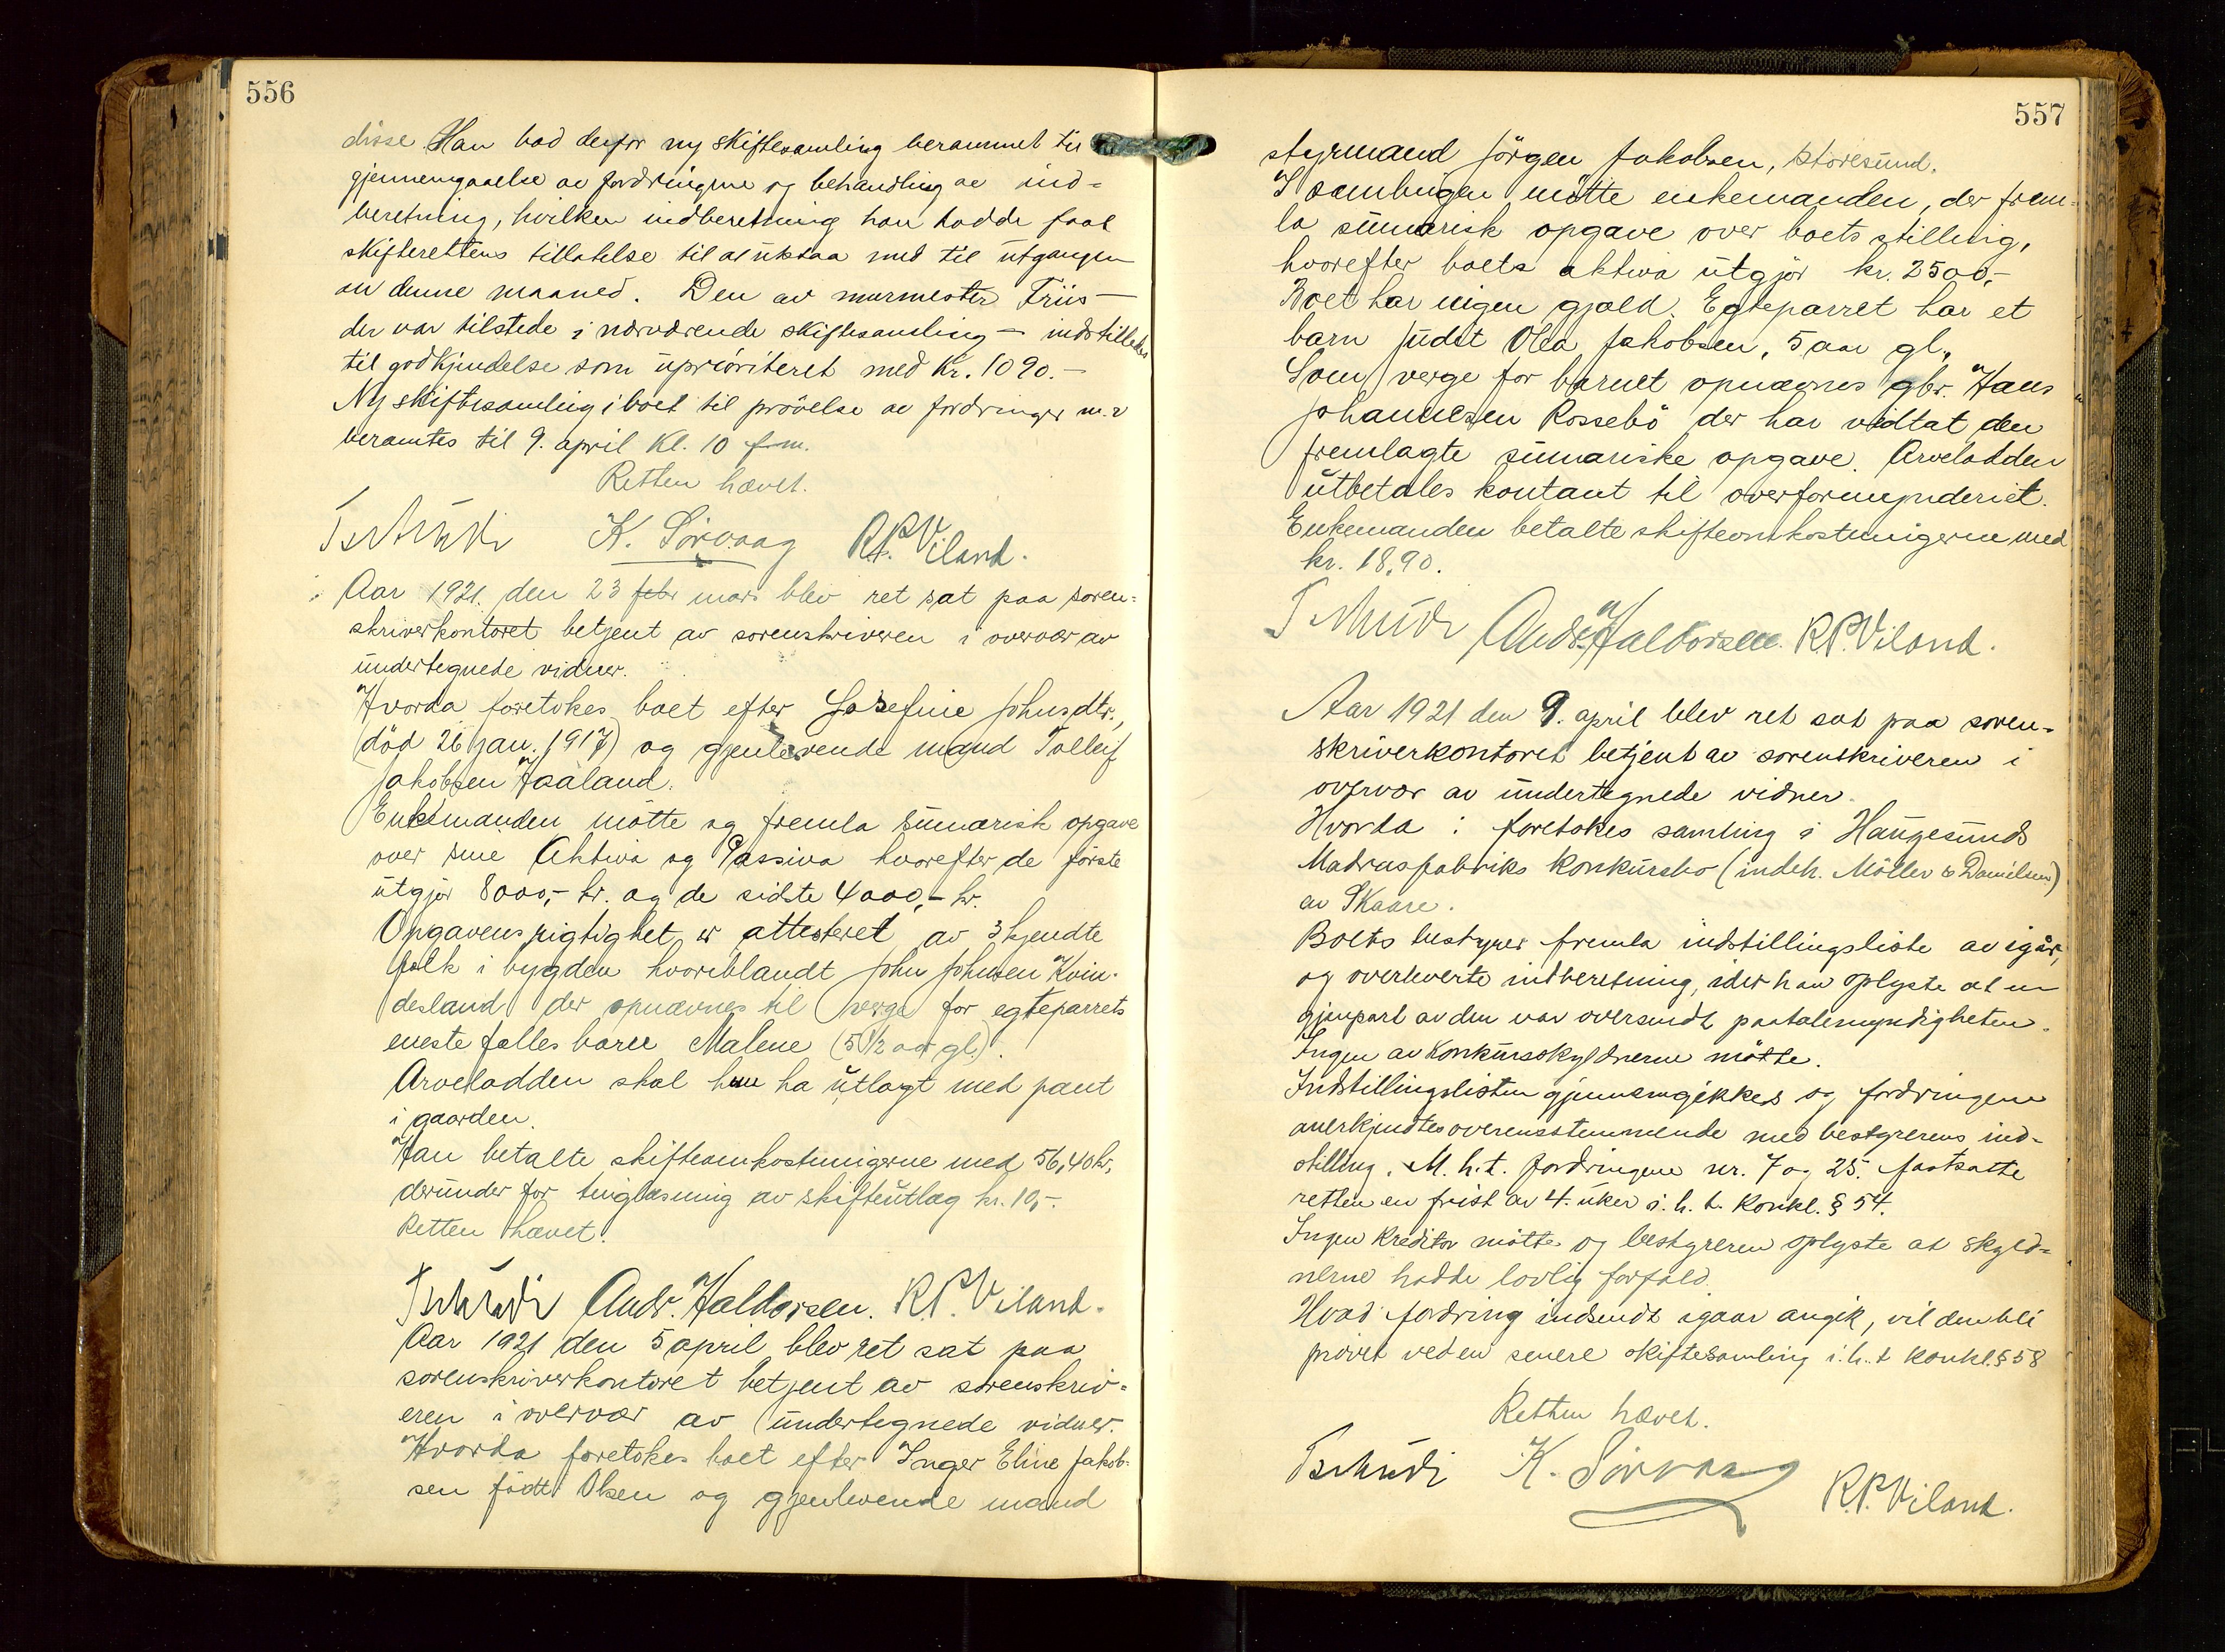 556
disse Han bad derfor ny skiftesamling berammet til
gjennemgaaelse av fordringene og behandling av ind-
beretning, hvilken indberetning han hadde faat
skifterettens tillatelse til at utstaa med til utgangen
av denne maaned. Den av murmester Friis —
der var tilstede i nærværende skiftesamling — indstilledes
til godkjendelse som uprioriteret med kr. 1090.-
Ny skiftesamling i boet til prövelse av fordringer m.v
beramtes til 9. april kl. 10 fm.
Retten hævet.
Tschudi K. Sörvaag R.P. Viland.
Aar 1921. den 23 febr mars blev ret sat paa soren-
skriverkontoret betjent av sorenskriveren i overvær av
undertegnede vidner.
Hvorda foretokes boet efter Josefine Johnsdtr.,
(död 26 jan. 1917) og gjenlevende mand Tolleif
Jakobsen Haaland.
Enkemanden mötte og fremla summarisk opgave
over sine Aktiva og Passiva hvorefter de förste
utgjör 8000,- kr. og de sidste 4000,- kr.
Opgavens rigtighet er attesteret av 3 kjendte
folk i bygden hvoriblandt John Johnsen Kvin-
desland der opnævnes til verge for egteparrets
eneste fælles barn Malene (5½ aar gl.).
Arvelodden skal hun ha utlagt med pant
i gaarden.
Han betalte skifteomkostningerne med 56,40 kr,
derunder for tinglæsning av skifteutlæg kr. 10,-.
Retten hævet.
Tschudi Andr. Haldorsen. R.P. Viland.
Aar 1921 den 5 april blev ret sat paa
sorenskriverkontoret betjent av sorenskriv-
eren i overvær av undertegnede vidner.
Hvorda foretokes boet efter Inger Eline Jakob-
sen födt Olsen og gjenlevende mand
557
styrmand Jörgen Jakobsen, Storesund.
I samlingen mötte enkemanden, der frem-
la summarisk opgave over boets stilling,
hvorefter boets aktiva utgjör kr. 2500,-
Boet har ingen gjæld. Egteparret har et
barn Judit Olea Jakobsen, 5 aar gl.,
Som verge for barnet opnævnes gbr. Hans
Johannesen Rossebö der har vedtat den
fremlagte summariske opgave. Arvelodden
utbetales kontant til overformynderiet.
Enkemanden betalte skifteomkostningerne med
kr. 18,90.
Tschudi Andr. Haldorsen. R.P. Viland.
Aar 1921 den 9. april blev ret sat paa soren-
skriverkontoret betjent av sorenskriveren i
overvær av undertegnede vidner.
Hvorda: foretokes samling i Haugesunds
Madrasfabriks konkursbo (indeh. Möller & Danielsen)
av Skaare.
Boets bestyrer fremla indstillingsliste av igår,
og overleverte indberetning, idet han oplyste at en
gjenpart av den var oversendt paatalemyndigheten.
Ingen av konkursskyldnerne mötte.
Indstillingslisten gjennemgikkes og fordringene
anerkjendtes overensstemmende med bestyrerens ind-
stilling. M.h.t. fordringene nr. 7 og 25. fastsatte
retten en frist av 4. uker i.h.t. Konkl. § 54.
Ingen kreditor mötte og bestyreren oplyste at skyld-
nerne hadde lovlig forfald.
Hvad fordring indsendt igaar angik, vil den bli
prövet ved en senere skiftesamling i.h.t konkl. § 58
Retten hævet.
Tschudi K. Sörvaag R.P. Viland.